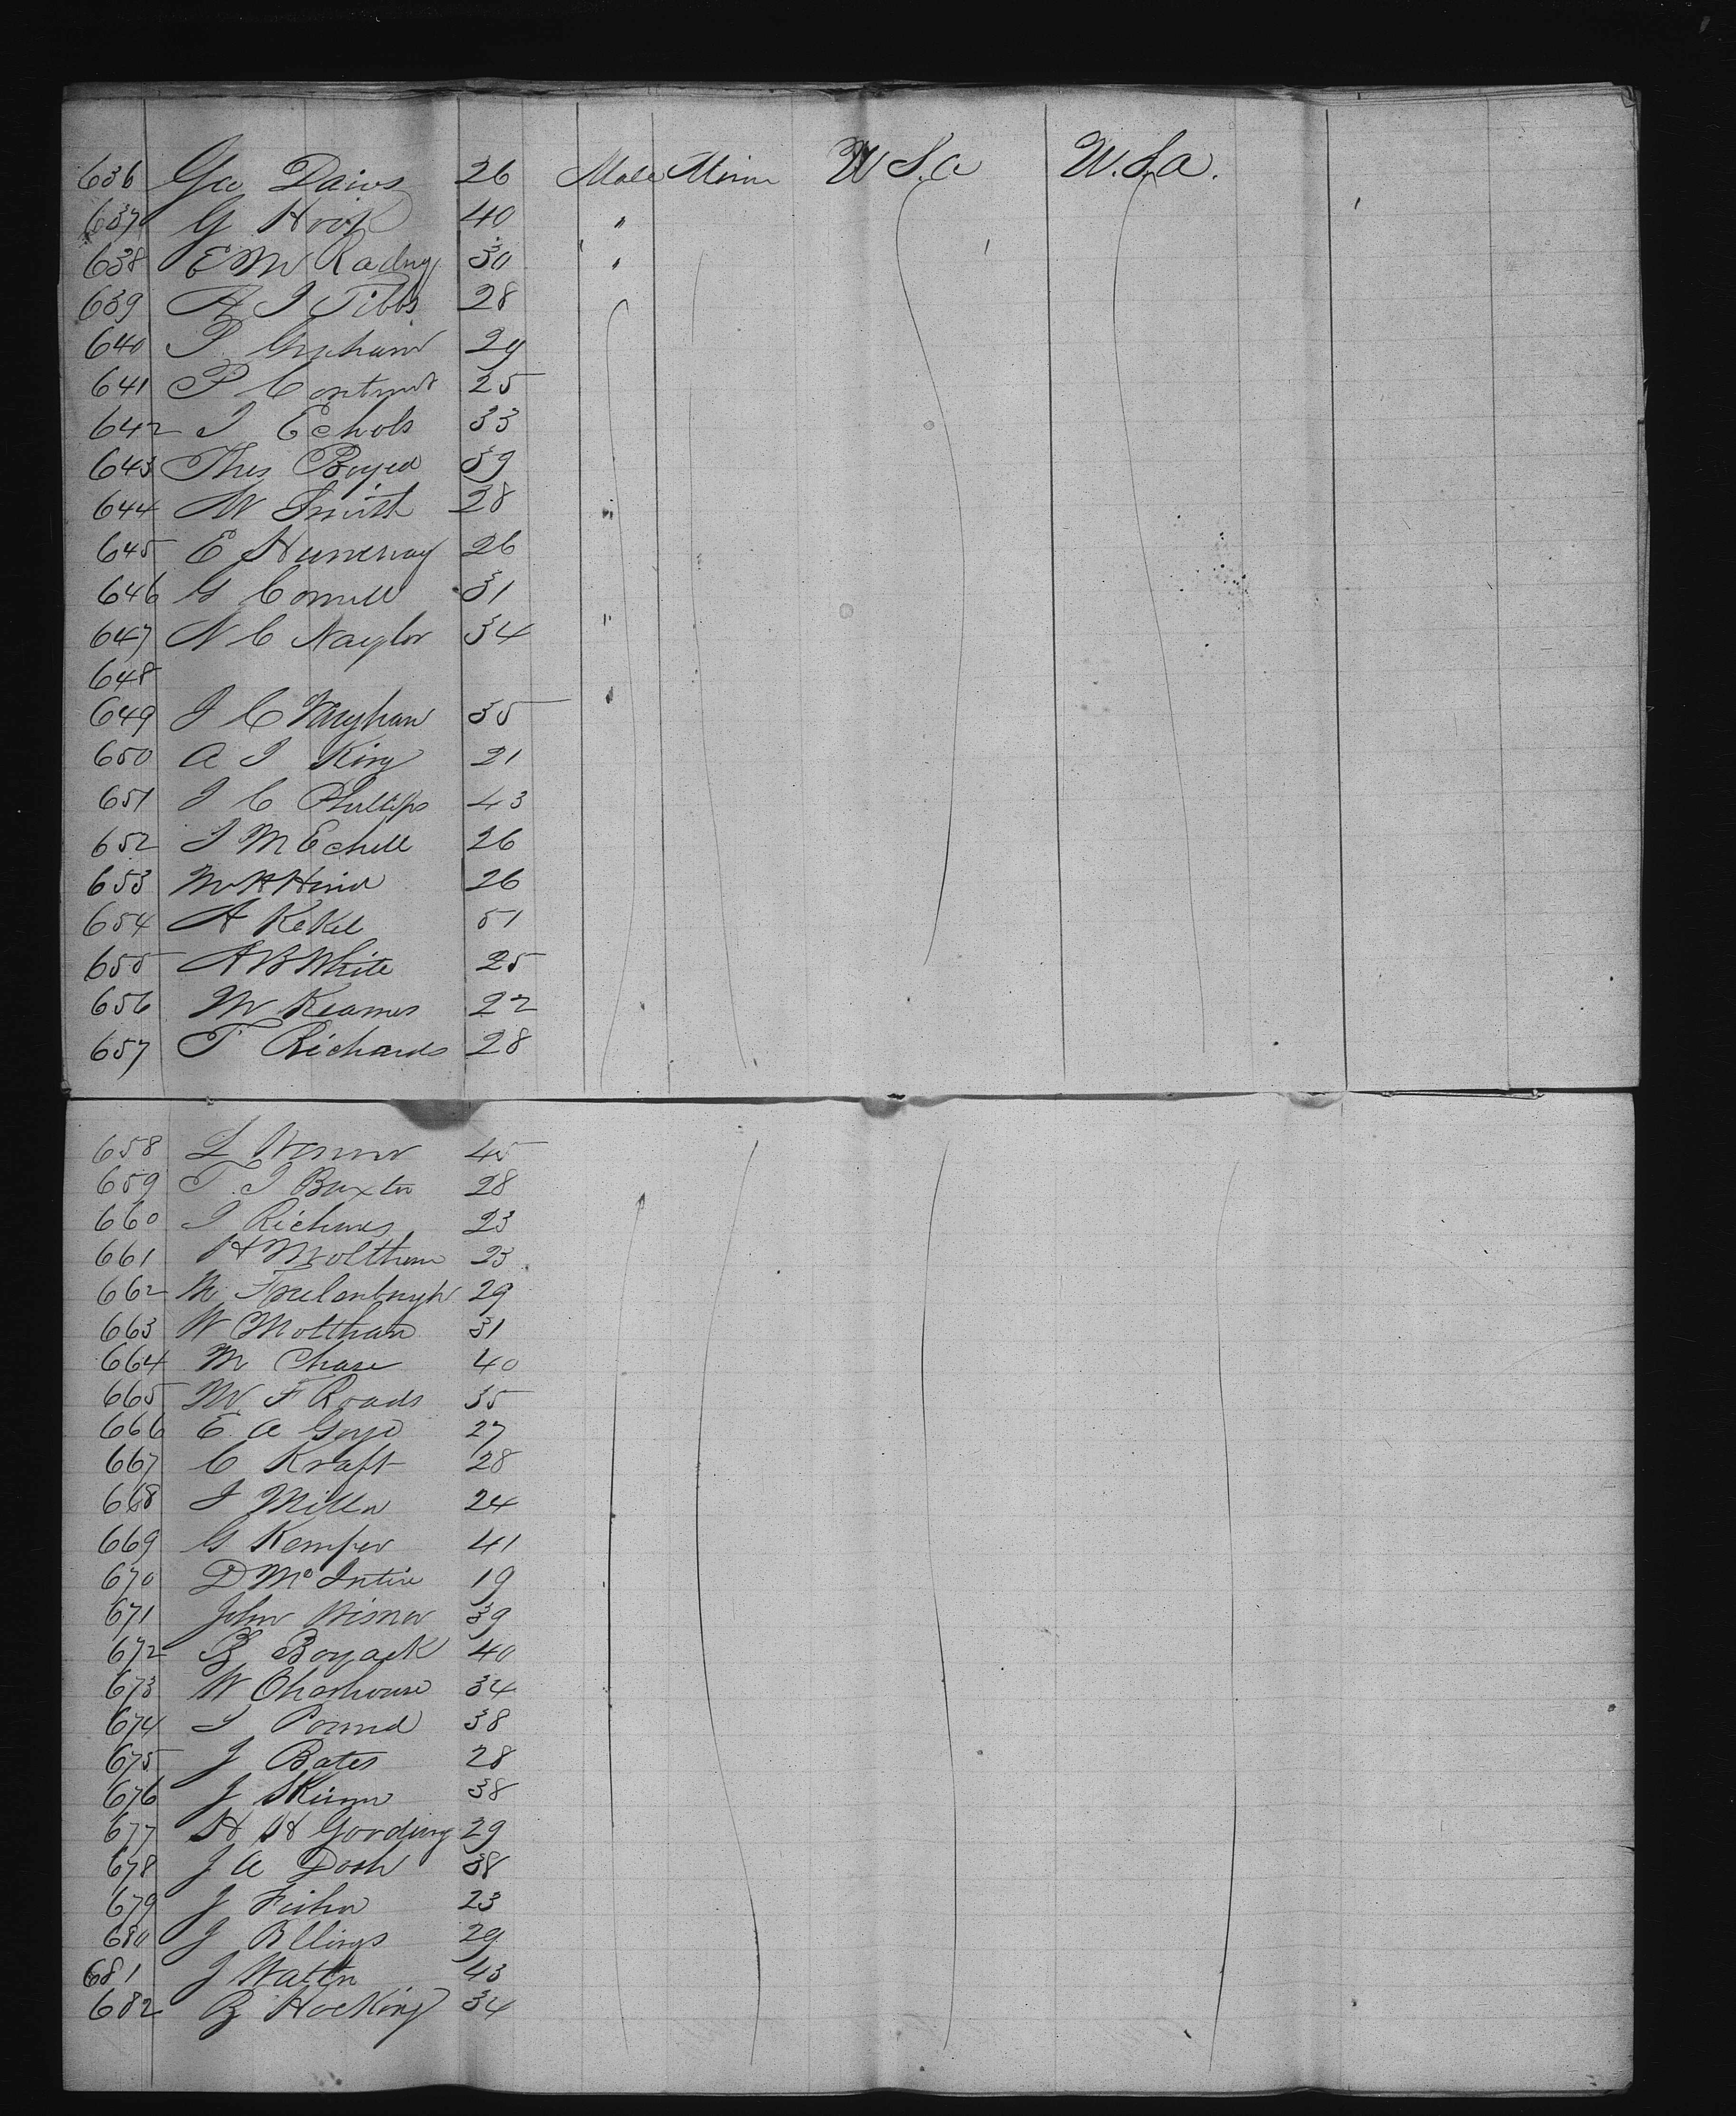 636 Geo Daives 26 Male Minn U S.a U.S.a.
637 G Hook 40 "
638 E M Radny 30 "
639 A J Tibbs 28
640 P. Grisham 29
641 P 25
642 J Echols 33
643 Thos Boyed 39
644 W Smith 28
645 E 26
646 G Cornell 31
647 N C Naylor 34
648
649 J C Vaughan 35
650 A J King 21
651 J C Phillips 43
652 J M Echell 26
653 26
654 A KeKel 51
655 A B White 25
656 W Keames 22
657 T Richards 28
658 L 45
659 T J Baxter 28
660 J 23
661 H Moltham 23
662 M 29
663 W Moltham 31
664 M Chase 40
665 W F Roads 35
666 E A 27
667 C Kraft 28
668 J Miller 24
669 G Kemper 41
670 D McIntire 19
671 John Wisner 39
672 B Boyack 40
673 W 34
674 J Pound 38
675 J Bates 28
676 J Skinner 38
677 H H Gooding 29
678 J A Dosh 38
679 J Fisher 23
680 J Bllings 29
681 J Watten 43
682 B Hocking 34